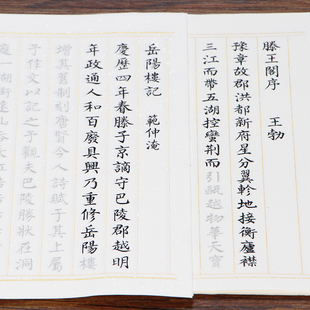 滕王閣序　王勃
豫章故郡洪都新府星分翼軫地接衡廬襟
三江而帶五湖控蠻荆而引甌越物華天寶
岳陽樓記　範仲淹
慶歷四年春滕子京謫守巴陵郡越明
年政通人和百廢具興乃重修岳陽樓
增其舊制刻唐賢今人詩賦于其上屬
予作文以記之予觀夫巴陵勝狀在洞
庭一湖銜遠山吞長江